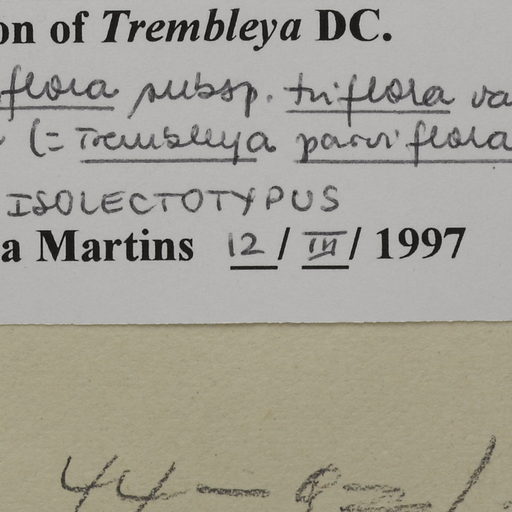 on of Trembleya DC.
flora subsp. triflora va
(= Trembleya parviflora
ISOLECTOTYPUS
a Martins 12 / III / 1997
44 —